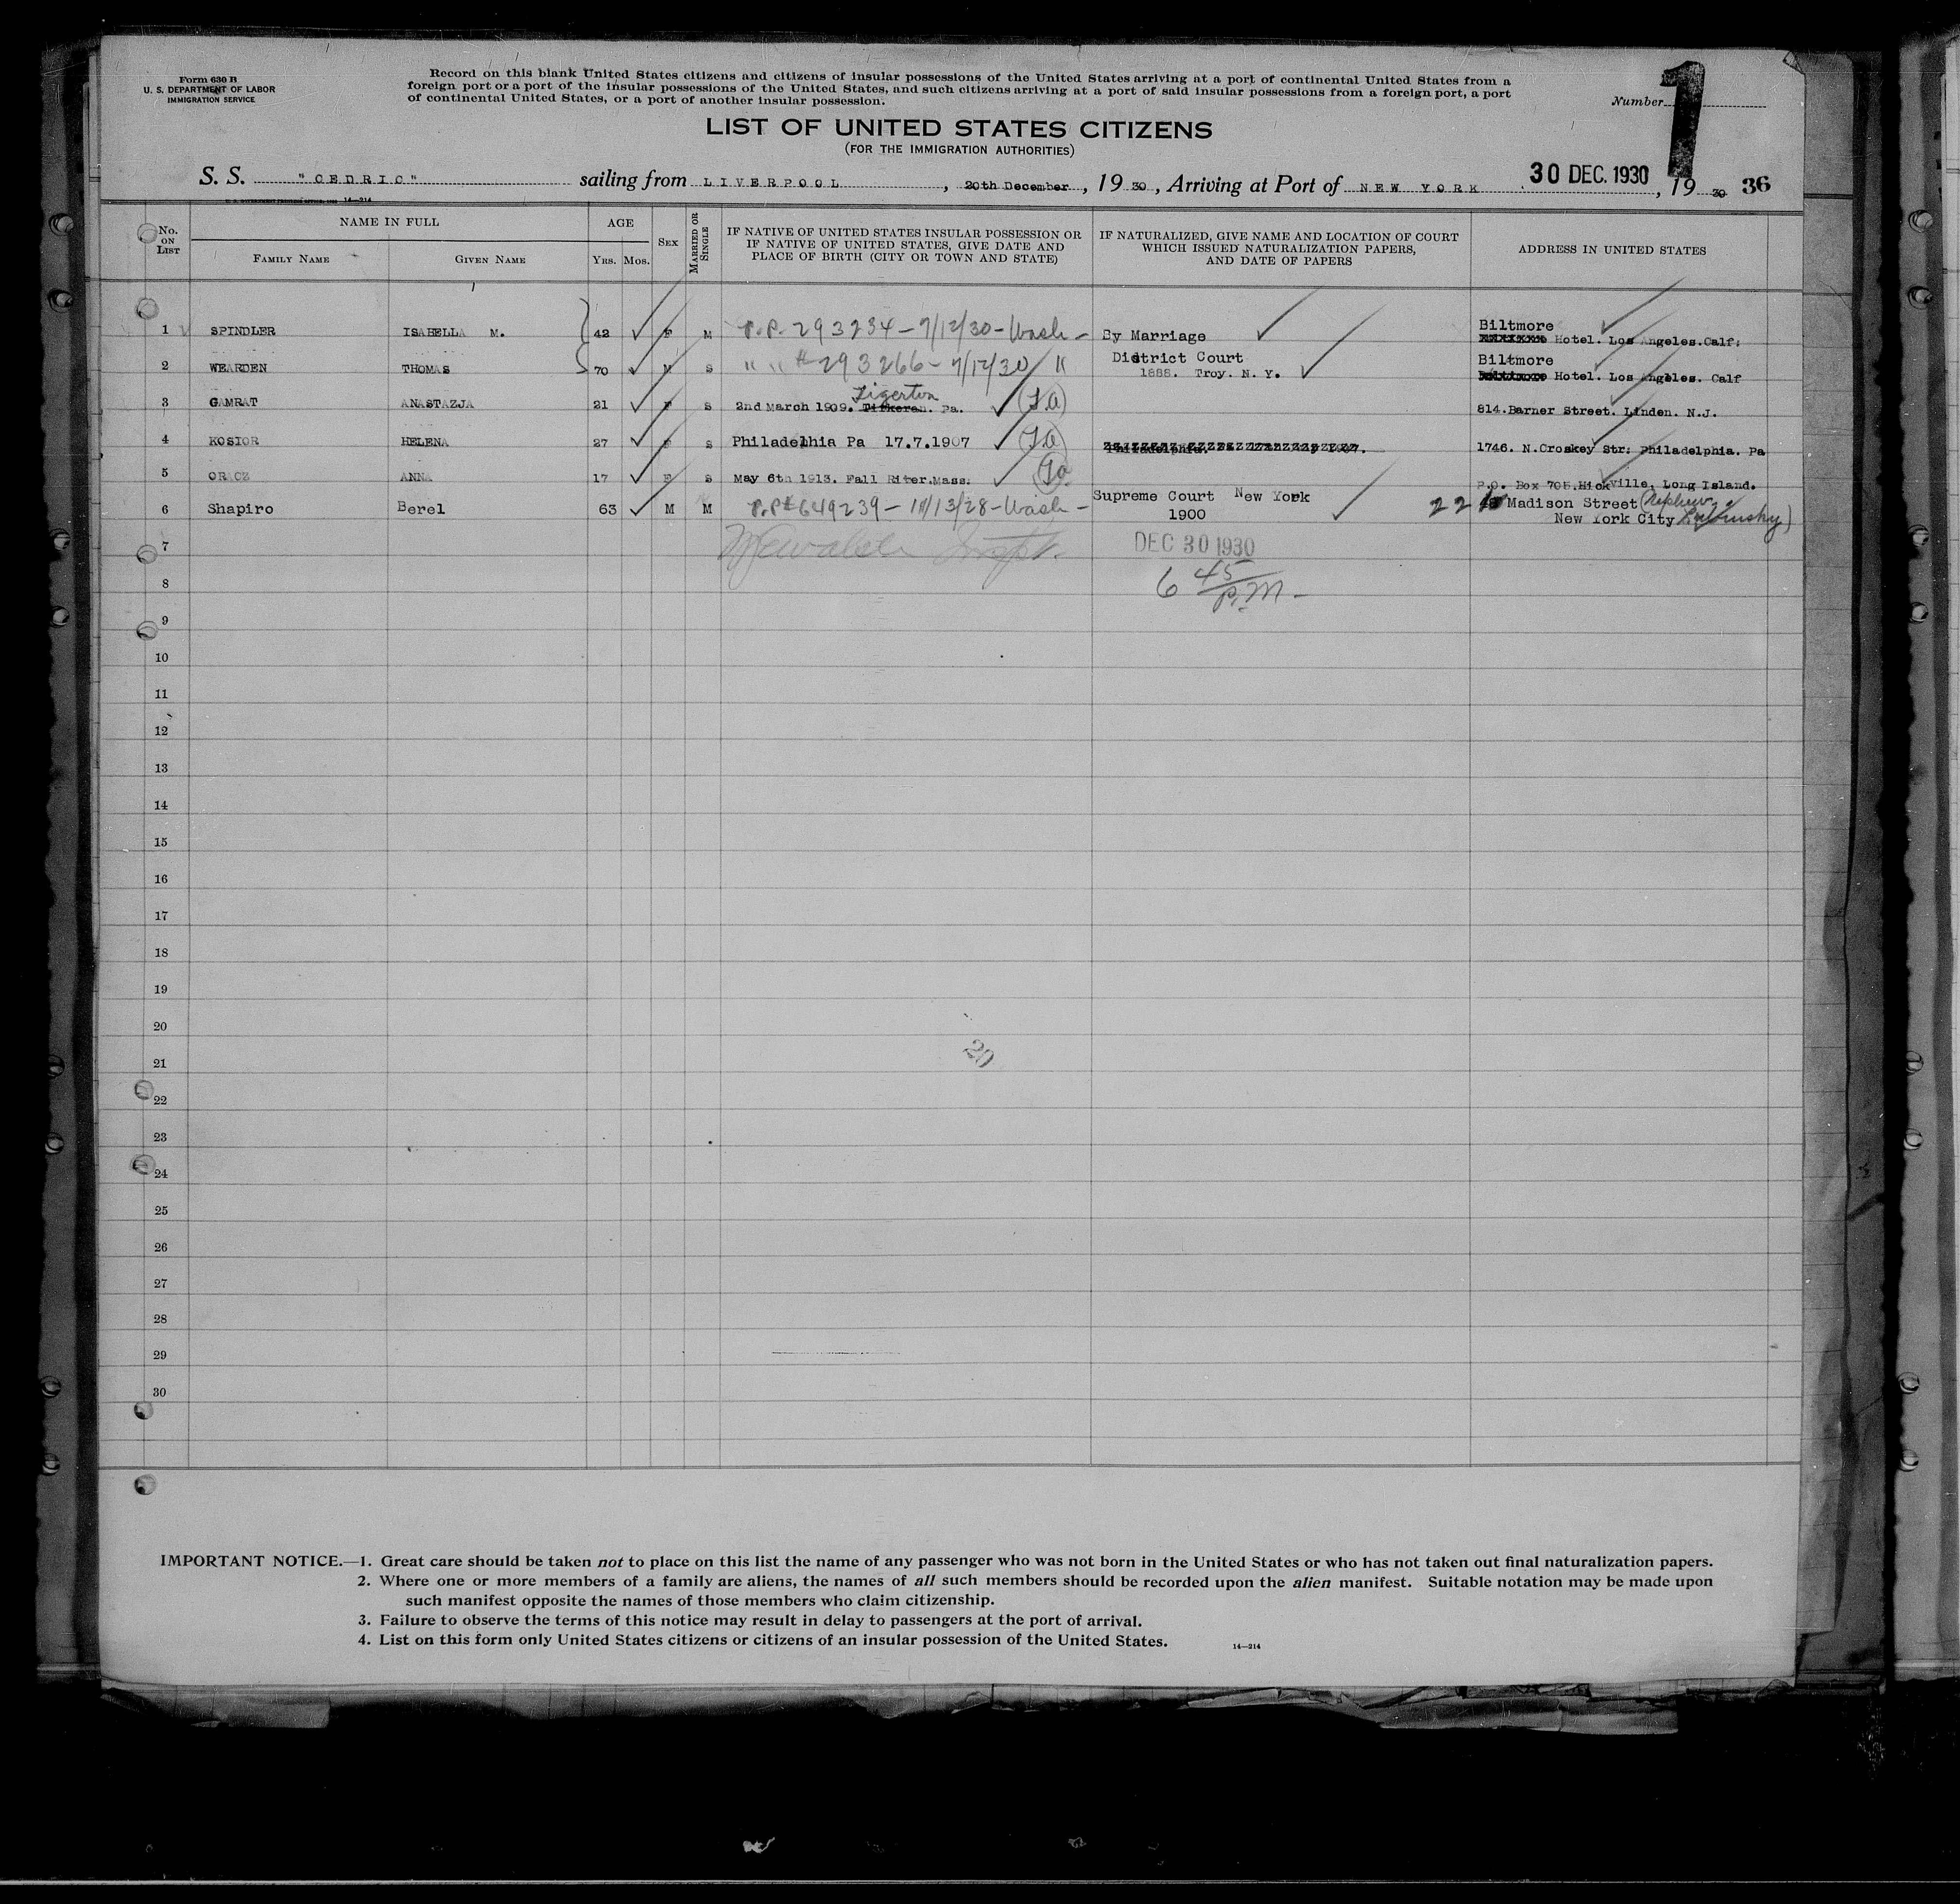 Form 630 B
U. S. DEPARTMENT OF LABOR
IMMIGRATION SERVICE
Record on this blank United States citizens and citizens of insular possessions of the United States arriving at a port of continental United States from a
foreign port or a port of the insular possessions of the United States, and such citizens arriving at a port of said insular possessions from a foreign port, a port
of continental United States, or a port of another insular possession.
Number 1
LIST OF UNITED STATES CITIZENS
(FOR THE IMMIGRATION AUTHORITIES)
S. S. "CEDRIC" sailing from LIVERPOOL, 20th December, 19 30, Arriving at Port of NEW YORK 30 DEC. 1930, 19 30 36
14—214
No. ON LIST
NAME IN FULL
FAMILY NAME
GIVEN NAME
AGE
YRS. MOS.
SEX
MARRIED OR SINGLE
IF NATIVE OF UNITED STATES INSULAR POSSESSION OR
IF NATIVE OF UNITED STATES, GIVE DATE AND
PLACE OF BIRTH (CITY OR TOWN AND STATE)
IF NATURALIZED, GIVE NAME AND LOCATION OF COURT
WHICH ISSUED NATURALIZATION PAPERS,
AND DATE OF PAPERS
ADDRESS IN UNITED STATES
1 SPINDLER ISABELLA M. 42 F M P.P. 293234 - 7/12/30 - Wash - By Marriage Biltmore
Hotel. Los Angeles.Calf;
2 WEARDEN THOMAS 70 M S " " # 293266 - 7/12/30 " District Court Biltmore
1888. Troy. N. Y. Hotel. Los Angeles. Calf
Tigerton
3 GAMRAT ANASTAZJA 21 F S 2nd March 1909. Pa. 814.Barner Street. Linden. N.J.
4 KOSIOR HELENA 27 F S Philadelhia Pa 17.7.1907 1746. N.Croskey Str; Philadelphia. Pa
5 ORACZ ANNA 17 F S May 6th 1913. Fall Riter.Mass. P.O. Box 705.Hickville, Long Island.
6 Shapiro Berel 63 M M P.P # 649239 - 10/13/28 - Wash - Supreme Court New York 22 Madison Street (Nephew
1900 New York City
7
DEC 30 1930
8 6 45 P.M -
9
10
11
12
13
14
15
16
17
18
19
20
20
21
22
23
24
25
26
27
28
29
30
IMPORTANT NOTICE.—1. Great care should be taken not to place on this list the name of any passenger who was not born in the United States or who has not taken out final naturalization papers.
2. Where one or more members of a family are aliens, the names of all such members should be recorded upon the alien manifest. Suitable notation may be made upon
such manifest opposite the names of those members who claim citizenship.
3. Failure to observe the terms of this notice may result in delay to passengers at the port of arrival.
4. List on this form only United States citizens or citizens of an insular possession of the United States.
14—214